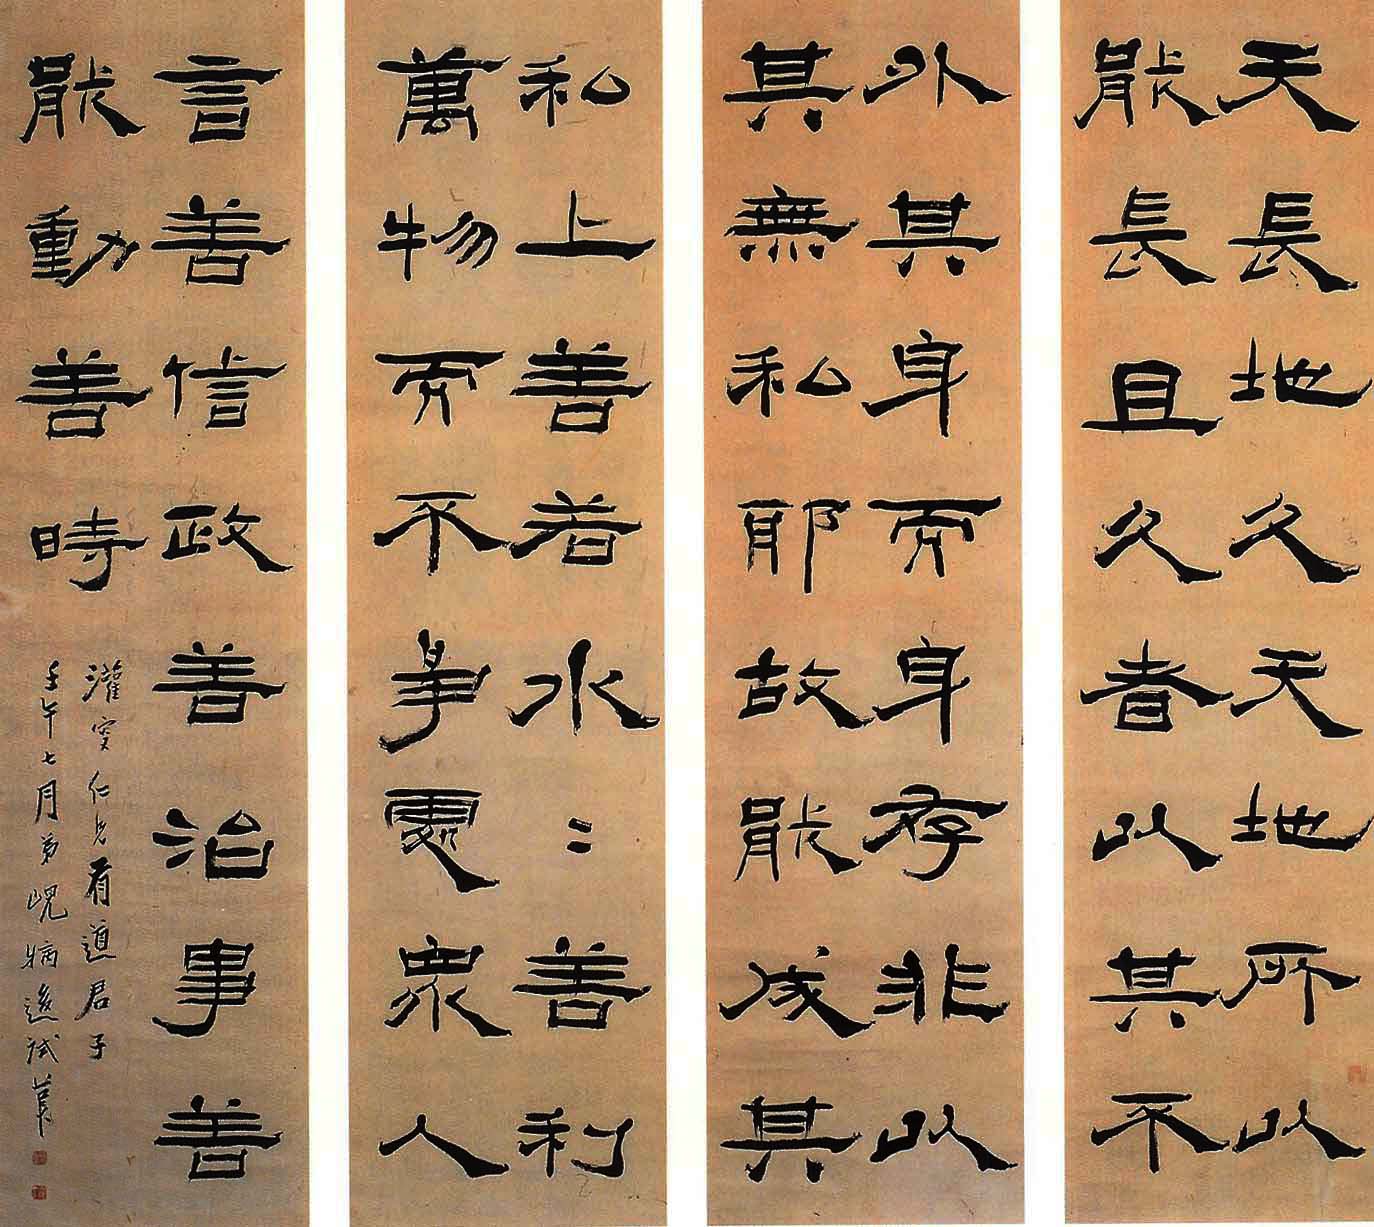 天長地久天地所以
能長且久者以其不
外其身而身存非以
其無私耶故能成其
私上善若水〻善利
萬物而不爭處眾人
言善信政善治事善
能動善時
灌叟仁兄有道君子
壬午七月弟峴病後試筆